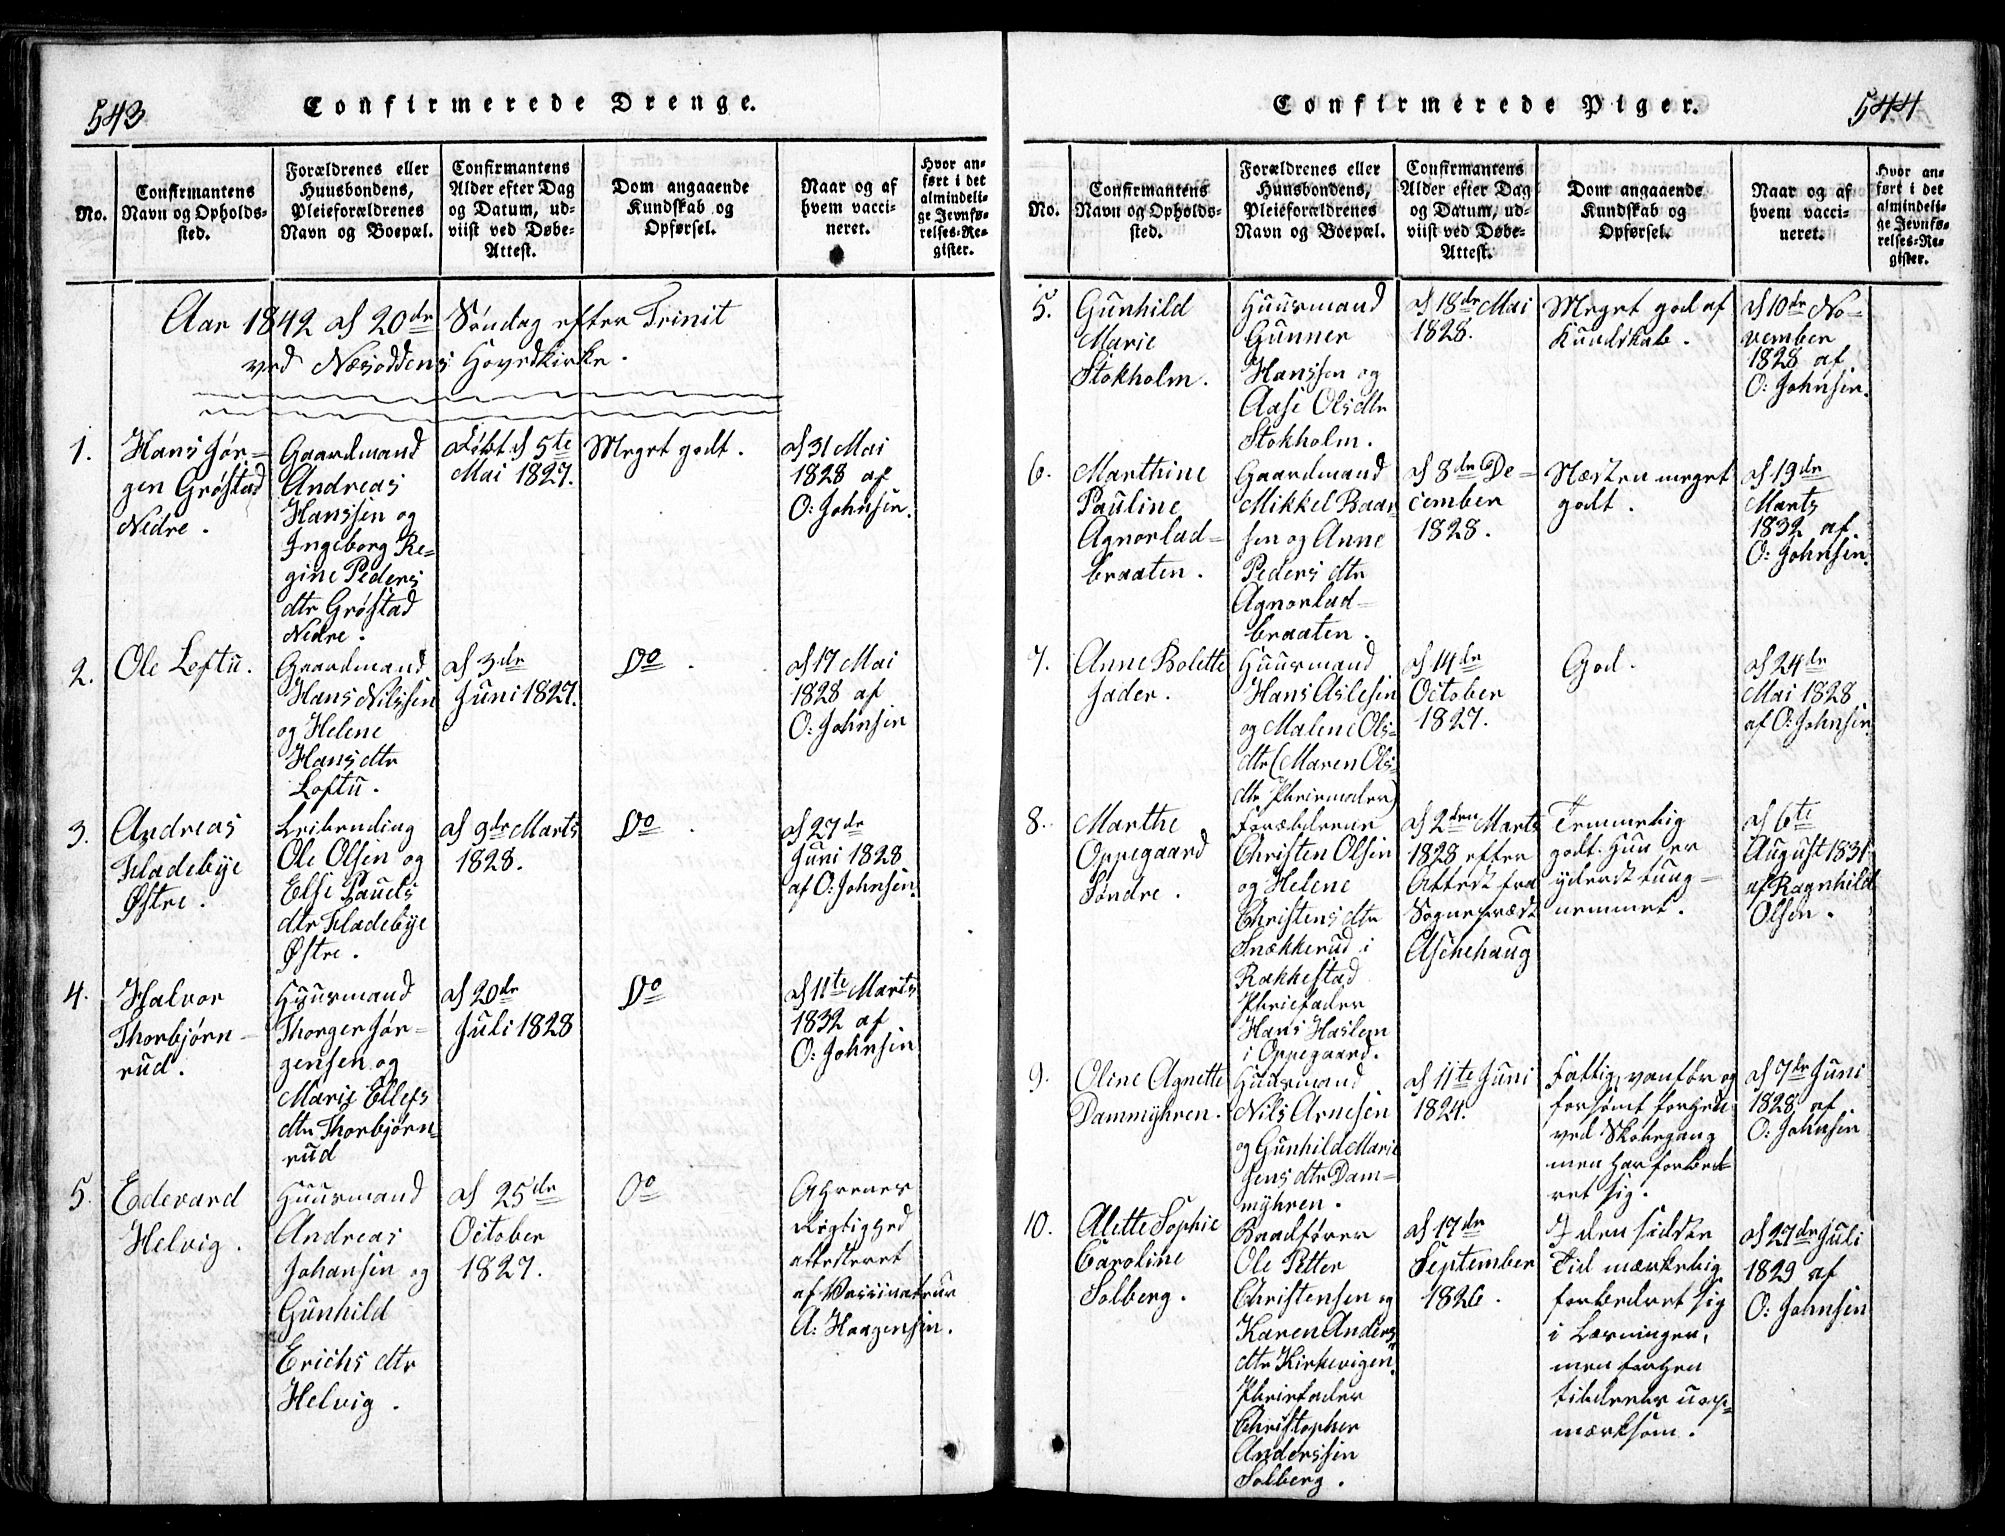 543
Confirmerede Drenge.
No.
Confirmantens
Navn og Opholds-
sted.
Forældrenes eller
Huusbondens,
Pleieforældrenes
Navn og Boepæl.
Confirmantens
Alder efter Dag
og Datum, ud-
viist ved Døbe-
Attest.
Dom angaaende
Kundskab og
Opførsel.
Naar og af
hvem vacci-
neret.
Hvor an-
ført i det
almindeli-
ge Jevnfø-
relses-Re-
gister.
Aar 1842 d 20de Søndag efter Trinit
ved Næsoddens Hovedkirke.
1.
Hans Jør-
gen Grøstad
Nedre.
Gaardmand
Andreas
Hanssen og
Ingeborg Re-
gine Peders
dtr Grøstad
Nedre.
Døbt d 5te
Mai 1827.
Meget godt.
d 31 Mai
1828 af
O: Johnsen.
2.
Ole Loftu.
Gaardmand
Hans Nilssen
og Helene
Hans dtr
Loftu.
d 3de
Juni 1827.
Do
d 17 Mai
1828 af
O: Johnsen
3.
Andreas
Fladebye
Østre.
Leilending
Ole Olsen og
Else Pauels
dtr Fladebye
Østre.
d 9de Marts
1828.
Do
d 27de
Juni 1828
af O: Johnsen.
4.
Halvor
Thorbjørn-
rud.
Huusmand
Thorger Jør-
gensen og
Marie Ellefs
dtr Thorbjørn-
rud
d 20de
Juli 1828
Do
d 11te Marts
1832 af
O: Johnsen
5.
Edevard
Helvig.
Huusmand
Andreas
Johansen og
Gunhild
Erichs dtr
Helvig.
d 25de
October
1827.
Do
Rigtighed
attesteret
af Vaccinateur
A: Haagensen.
544
Confirmerede Piger.
No.
Confirmantens
Navn og Opholds-
sted.
Forældrenes eller
Huusbondens,
Pleieforældrenes
Navn og Boepæl.
Confirmantens
Alder efter Dag
og Datum, ud-
viist ved Døbe-
Attest.
Dom angaaende
Kundskab og
Opførsel.
Naar og af
hvem vacci-
neret.
Hvor an-
ført i det
almindeli-
ge Jevnfø-
relses-Re-
gister.
5.
Gunhild
Marie
Stokholm.
Huusmand
Gunner
Hanssen og
Aase Olsdtr
Stokholm.
d 18de Mai
1828.
Meget god af
Kundskab.
d 10de No-
vember
1828 af
O: Johnsen.
6.
Marthine
Pauline
Agnorlad-
braaten.
Gaardmand
Mikkel Baar-
sen og Anne
Peders dtr
Agnorlad-
braaten.
d 8de De-
cember
1828.
Næsten meget
godt.
d 19de
Marts
1832 af
O: Johnsen.
7.
Anne Bolette
Jader.
Huusmand
Hans Aslesen
og Malene Ols-
dtr (Maren Ols-
dtr Pleiemoder)
d 14de
October
1827.
God.
d 24de
Mai 1828
af O: Johnsen.
8.
Marthe
Oppegaard
Søndre.
Forældrene
Christen Olsen
og Helene
Christens dtr
Snekkerud i
Rakkestad
Pleiefader
Hans Haslem
i Oppegaard.
d 2den Marts
1828 efter
Attest fra
Sogneprest
Aschehaug
Temmelig
godt. Hun er
yderst tung-
nemmet.
d 6te
August 1831
af Ragnhild
Olsen.
9.
Oline Agnette
Dammyhren.
Huusmand
Nils Arnesen
og Gunhild Marie
Jens dtr Dam-
myhren.
d 11te Juni
1824.
Fattig, vanfør og
forsømt forhen
ved Skolegang
men har forbed-
ret sig.
d 7de Juni
1828 af
O: Johnsen
10.
Alette Sophie
Caroline
Solberg.
Baadfører
Ole Petter
Christensen og
Karen Anders
dtr Kirkevigen.
Pleiefader
Christopher
Anderssen
Solberg.
d 17de
September
1826.
I den sidste
Tid mærkelig
forbedret sig
i Læsningen,
men forhen
tildeels uop-
mærksom.
d 27de Juli
1829 af
O: Johnsen